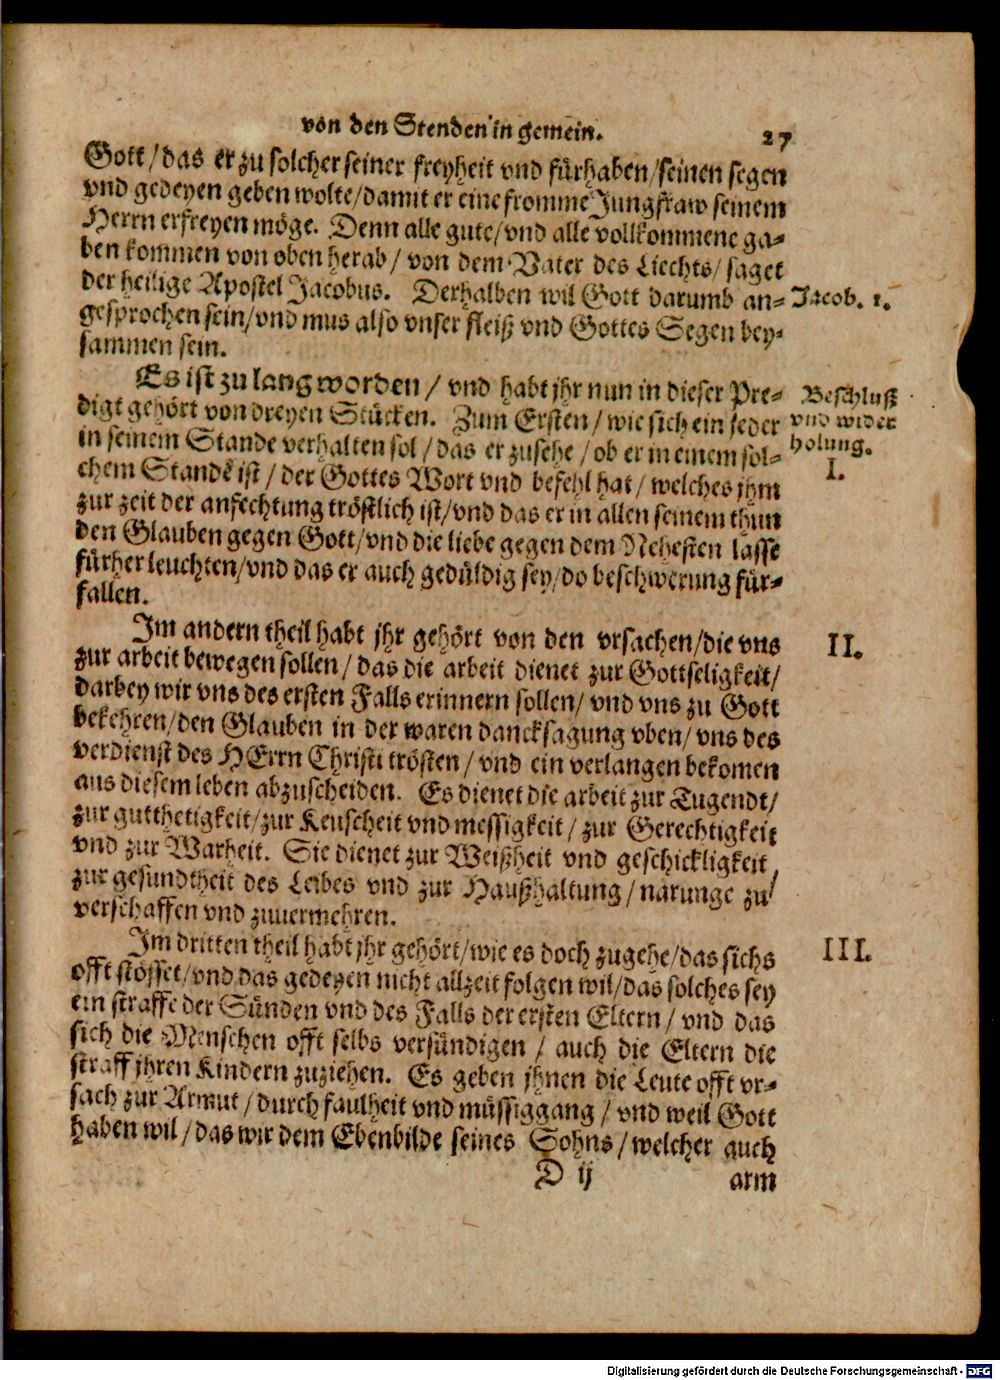 von den Stenden in gemein. 27
Gott/das er zu solcher seiner freyheit vnd fürhaben/seinen segen
vnd gedeyen geben wolte/damit er eine fromme Jungfraw seinem
Herrn erfreyen möge. Denn alle gute/vnd alle vollkommene ga-
ben kommen von oben herab/ von dem Vater des Liechts/ saget
der heilige Apostel Jacobus. Derhalben wil Gott darumb an-
Jacob. 1.
gesprochen sein/vnd mus also vnser fleiß vnd Gottes Segen bey-
sammen sein.
Es ist zu lang worden/ vnd habt jhr nun in dieser Pre-
Beschluß
digt gehört von dreyen Stücken. Zum Ersten/ wie sich ein jeder
vnd wider
in seinem Stande verhalten sol/das er zusehe/ob er in einem sol-
holung.
chem Stande ist/ der Gottes Wort vnd befehl hat/ welches jhm
I.
zur zeit der anfechtung tröstlich ist/vnd das er in allen seinem thun
den Glauben gegen Gott/vnd die liebe gegen dem Nehesten lasse
fürher leuchten/vnd das er auch gedüldig sey/do beschwerung für-
fallen.
Im andern theil habt jhr gehört von den vrsachen/die vns
II.
zur arbeit bewegen sollen/ das die arbeit dienet zur Gottseligkeit/
darbey wir vns des ersten Falls erinnern sollen/ vnd vns zu Gott
bekehren/den Glauben in der waren dancksagung vben/ vns des
verdienst des HErrn Christi trösten/ vnd ein verlangen bekomen
aus diesem leben abzuscheiden. Es dienet die arbeit zur Tugendt/
zur gutthetigkeit/zur Keuscheit vnd messigkeit/ zur Gerechtigkeit
vnd zur Warheit. Sie dienet zur Weißheit vnd geschickligkeit,
zur gesundtheit des Leibes vnd zur Haußhaltung/narunge zu
verschaffen vnd zuuermehren.
Im dritten theil habt jhr gehört/wie es doch zugehe/das sichs
III.
offt stösset/vnd das gedeyen nicht allzeit folgen wil/das solches sey
ein straffe der Sünden vnd des Falls der ersten Eltern/ vnd das
sich die Menschen offt selbs versündigen/ auch die Eltern die
straff jhren Kindern zuziehen. Es geben jhnen die Leute offt vr-
sach zur Armut/durch faulheit vnd müssiggang/ vnd weil Gott
haben wil/das wir dem Ebenbilde seines Sohns/welcher auch
D ij arm
Digitalisierung gefördert durch die Deutsche Forschungsgemeinschaft - DFG